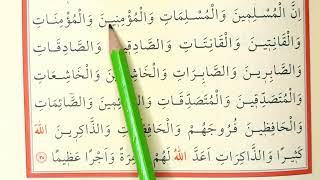 اِنَّ الْمُسْلِمِينَ وَالْمُسْلِمَاتِ وَالْمُؤْمِنِينَ وَالْمُؤْمِنَاتِ
وَالْقَانِتِينَ وَالْقَانِتَاتِ وَالصَّادِقِينَ وَالصَّادِقَاتِ
وَالصَّابِرِينَ وَالصَّابِرَاتِ وَالْخَاشِعِينَ وَالْخَاشِعَاتِ
وَالْمُتَصَدِّقِينَ وَالْمُتَصَدِّقَاتِ وَالصَّائِمِينَ وَالصَّائِمَاتِ
وَالْحَافِظِينَ فُرُوجَهُمْ وَالْحَافِظَاتِ وَالذَّاكِرِينَ اللّٰهَ
كَثِيرًا وَالذَّاكِرَاتِ اَعَدَّ اللّٰهُ لَهُمْ مَغْفِرَةً وَاَجْرًا عَظِيمًا ٣٥